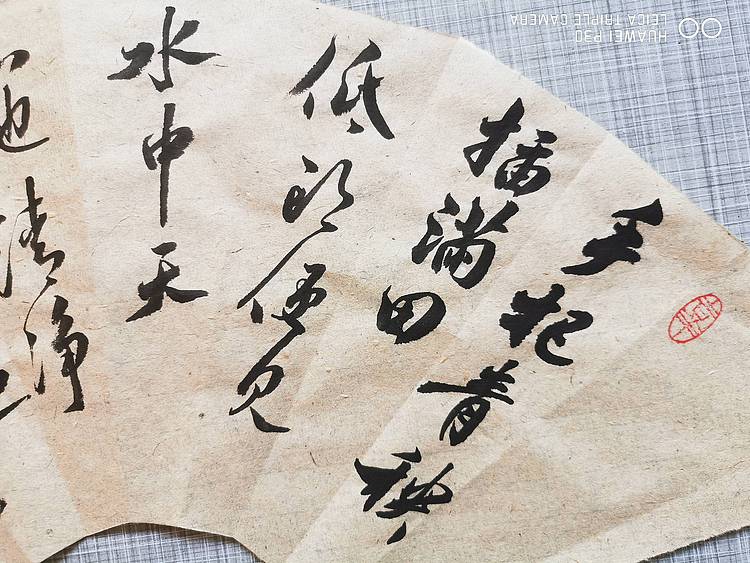 手把青秧
插满田
低头便见
水中天
地清净
HUAWEI P30
LEICA TRIPLE CAMERA